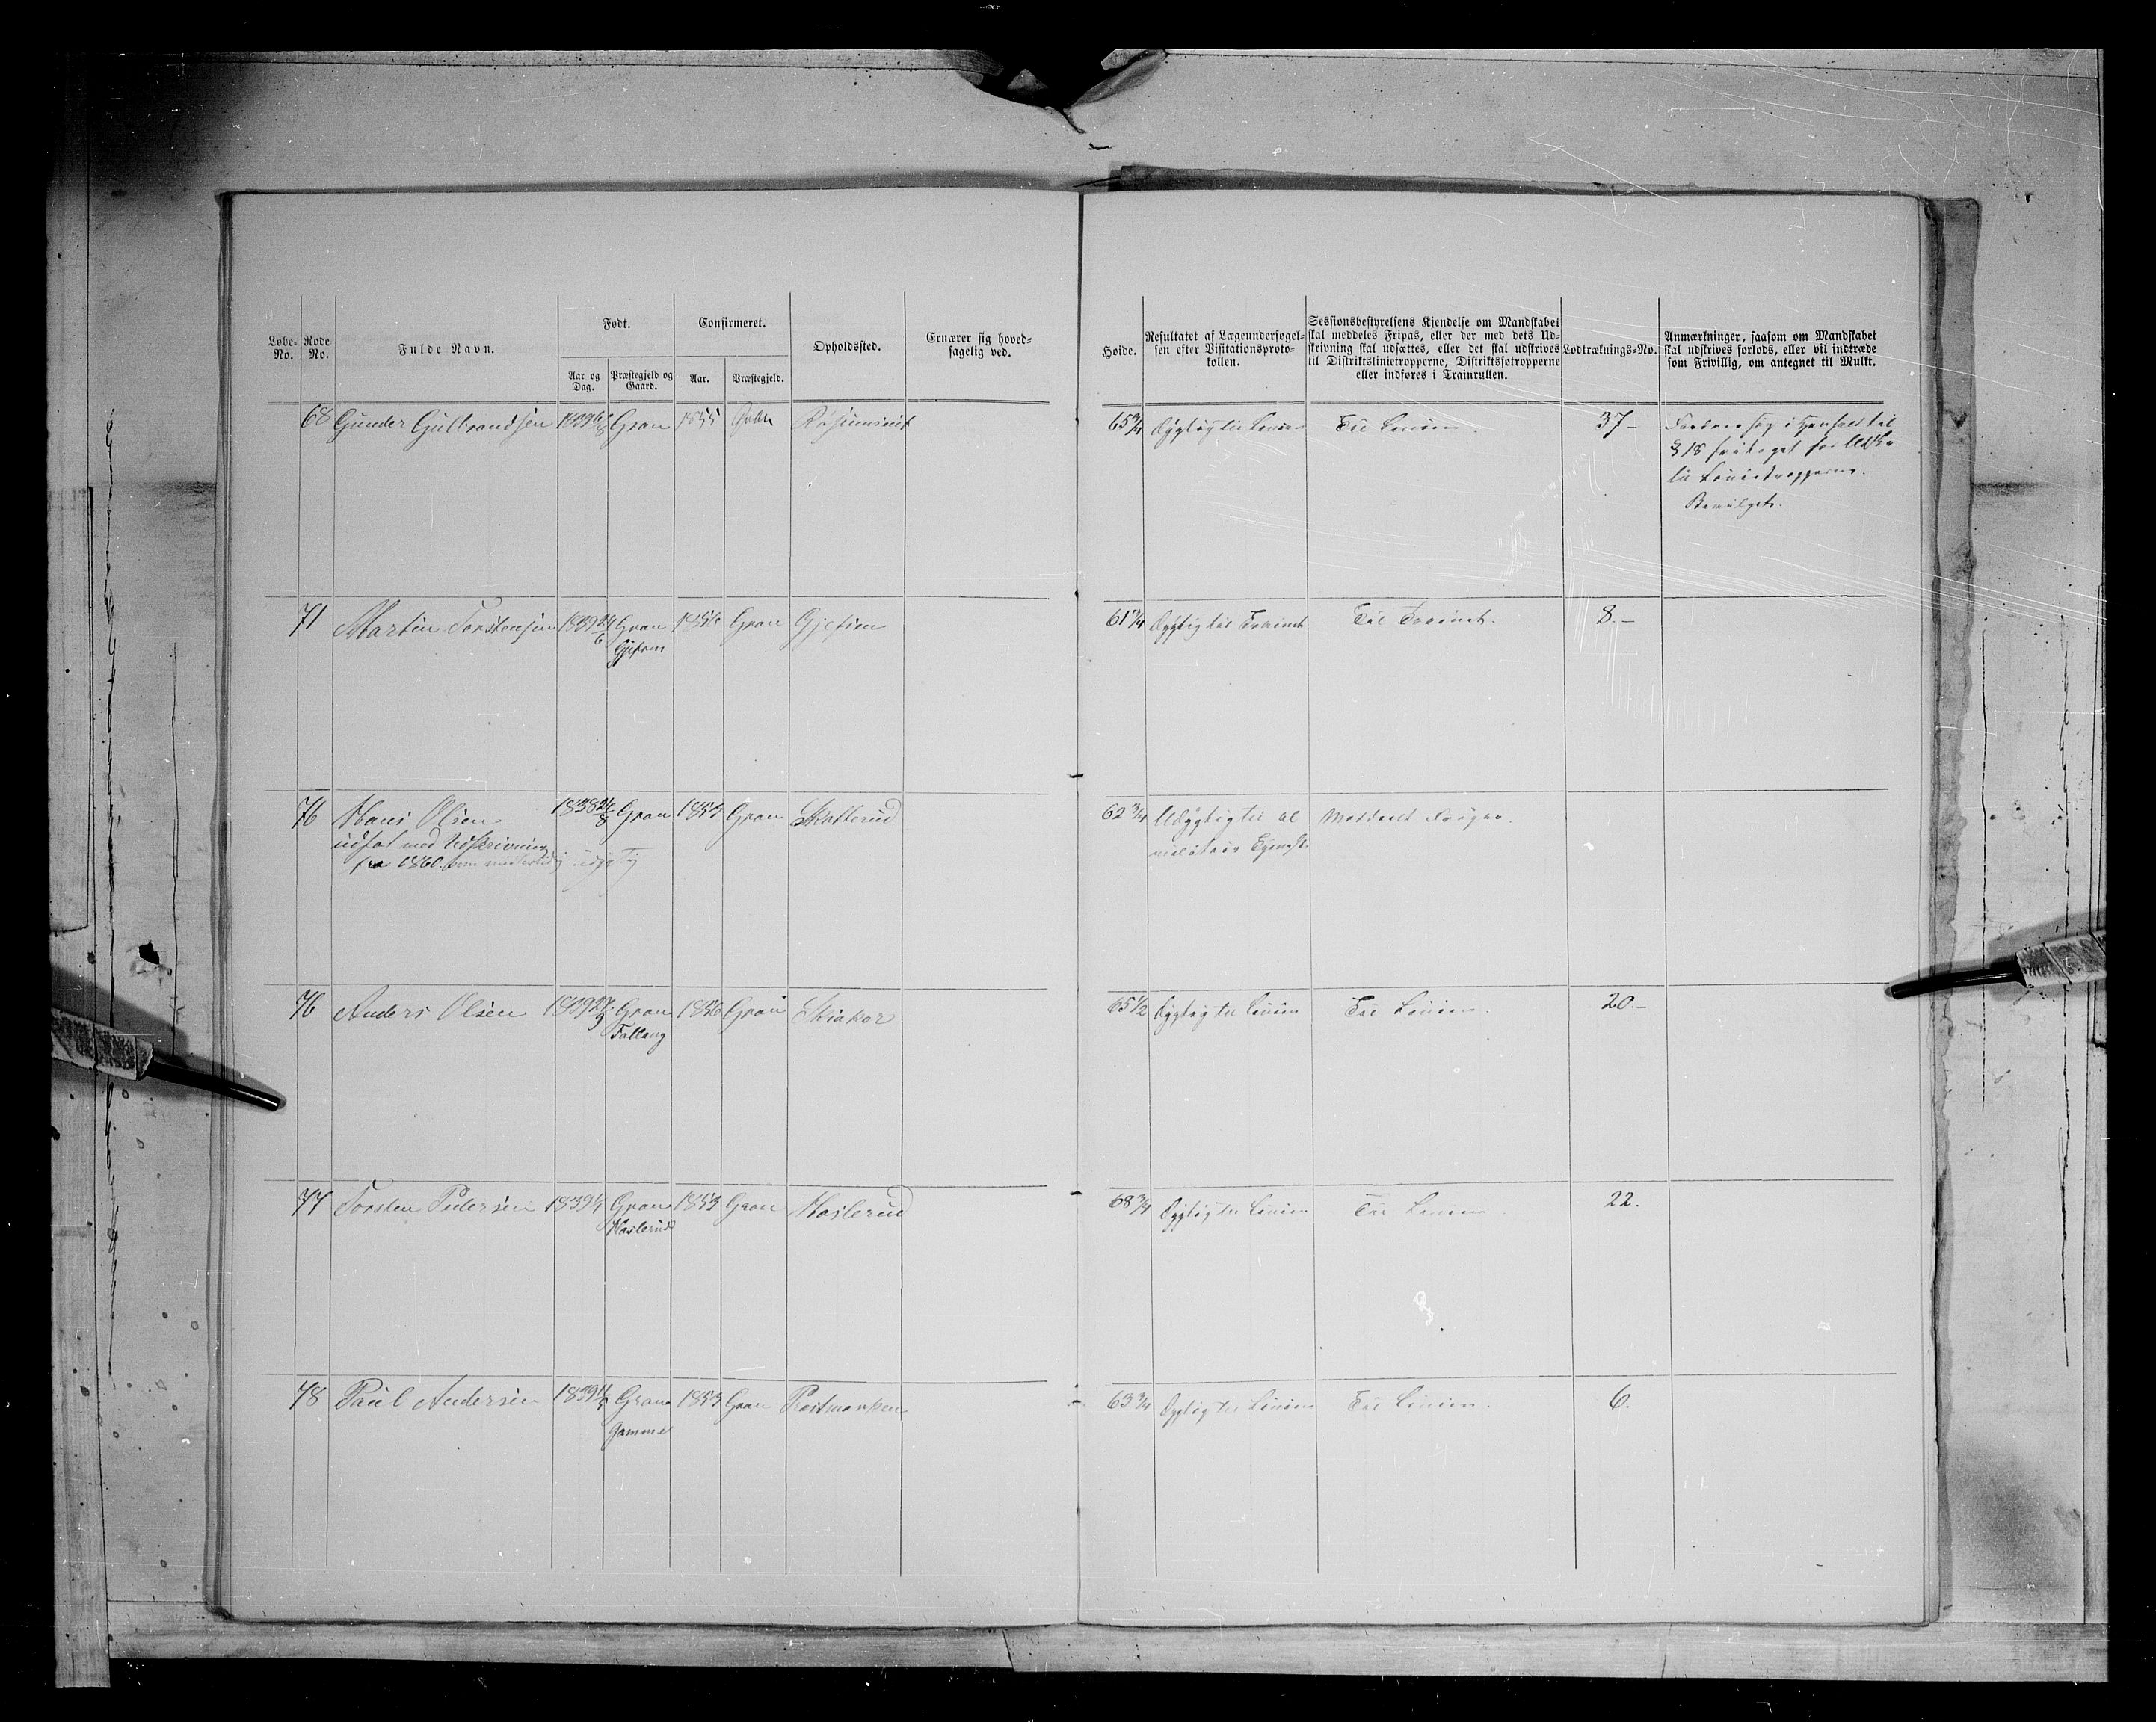 Løbe-No.
Rode No.
Fulde Navn.
Født.
Aar og Dag.
Præstegjeld og Gaard.
Confirmeret.
Aar.
Præstegjeld.
Opholdssted.
Ernærer sig hoved-
sagelig ved.
Høide.
Resultatet af Lægeundersøgel-
sen efter Visitationsproto-
kollen.
Sessionsbestyrelsens Kjendelse om Mandskabet
skal meddeles Fripas, eller der med dets Ud-
skrivning skal udsættes, eller det skal udskrives
til Distriktslinietropperne, Distriktsfotropperne
eller indføres i Trainrullen.
Lodtræknings-No.
Anmærkninger, saasom om Mandskabet
skal udskrives forlods, eller vil indtræde
som Frivillig, om antegnet til Mulkt.
68 Gunder Gulbrandsen 1839 6/8 Gran 1855 Gran 65 3/4 Dygtig til Linien Til Linien. 37-
§ 18
Linietropperne.
Bevilget.
71 Martin Torstensen 1839 24/6 Gran 1856 Gran Gjefsen 61 3/4 Dygtig til Trainet Til Trainet. 8.-
Gjefsen
76 Hans Olsen 1838 26/8 Gran 1853 Gran Skatterud 62 3/4 Udygtig til al Meddeelt
udsat med Udskrivning militær Tjeneste
fra 1860. som midlertidig udygtig
76 Anders Olsen 1839 27/9 Gran 1856 Gran Skiaker 65 1/2 Dygtig til Linien Til Linien. 20.-
Fallang
77 Torsten Pedersen 1839 Gran 1853 Gran Haslerud 68 3/4 Dygtig til Linien Til Linien. 22.
Haslerud
78 Paul Andersen 1839 Gran 1853 Gran Rastmarken 63 3/4 Dygtig til Linien Til Linien. 6.
Gamme